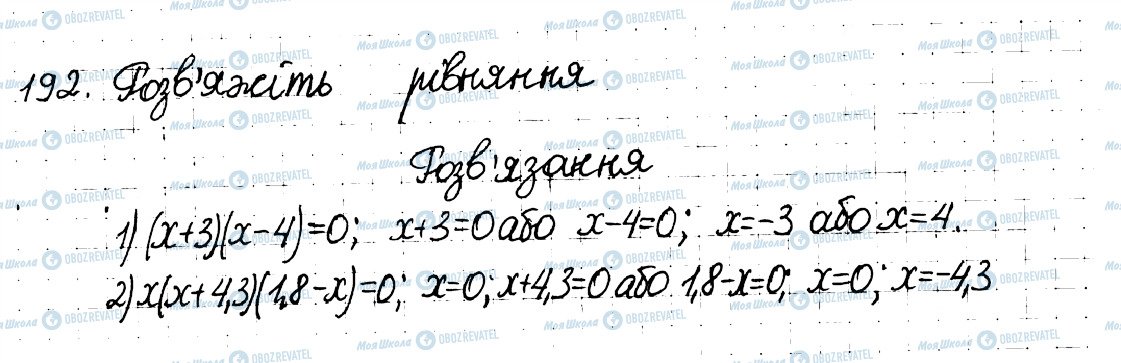 192. Розв'яжіть рівняння
Розв'язання
1) (x+3)(x-4)=0; x+3=0 або x-4=0; x=-3 або x=4.
2) x(x+4,3)(1,8-x)=0; x=0; x+4,3=0 або 1,8-x=0; x=0; x=-4,3
Моя Школа OBOZREVATEL